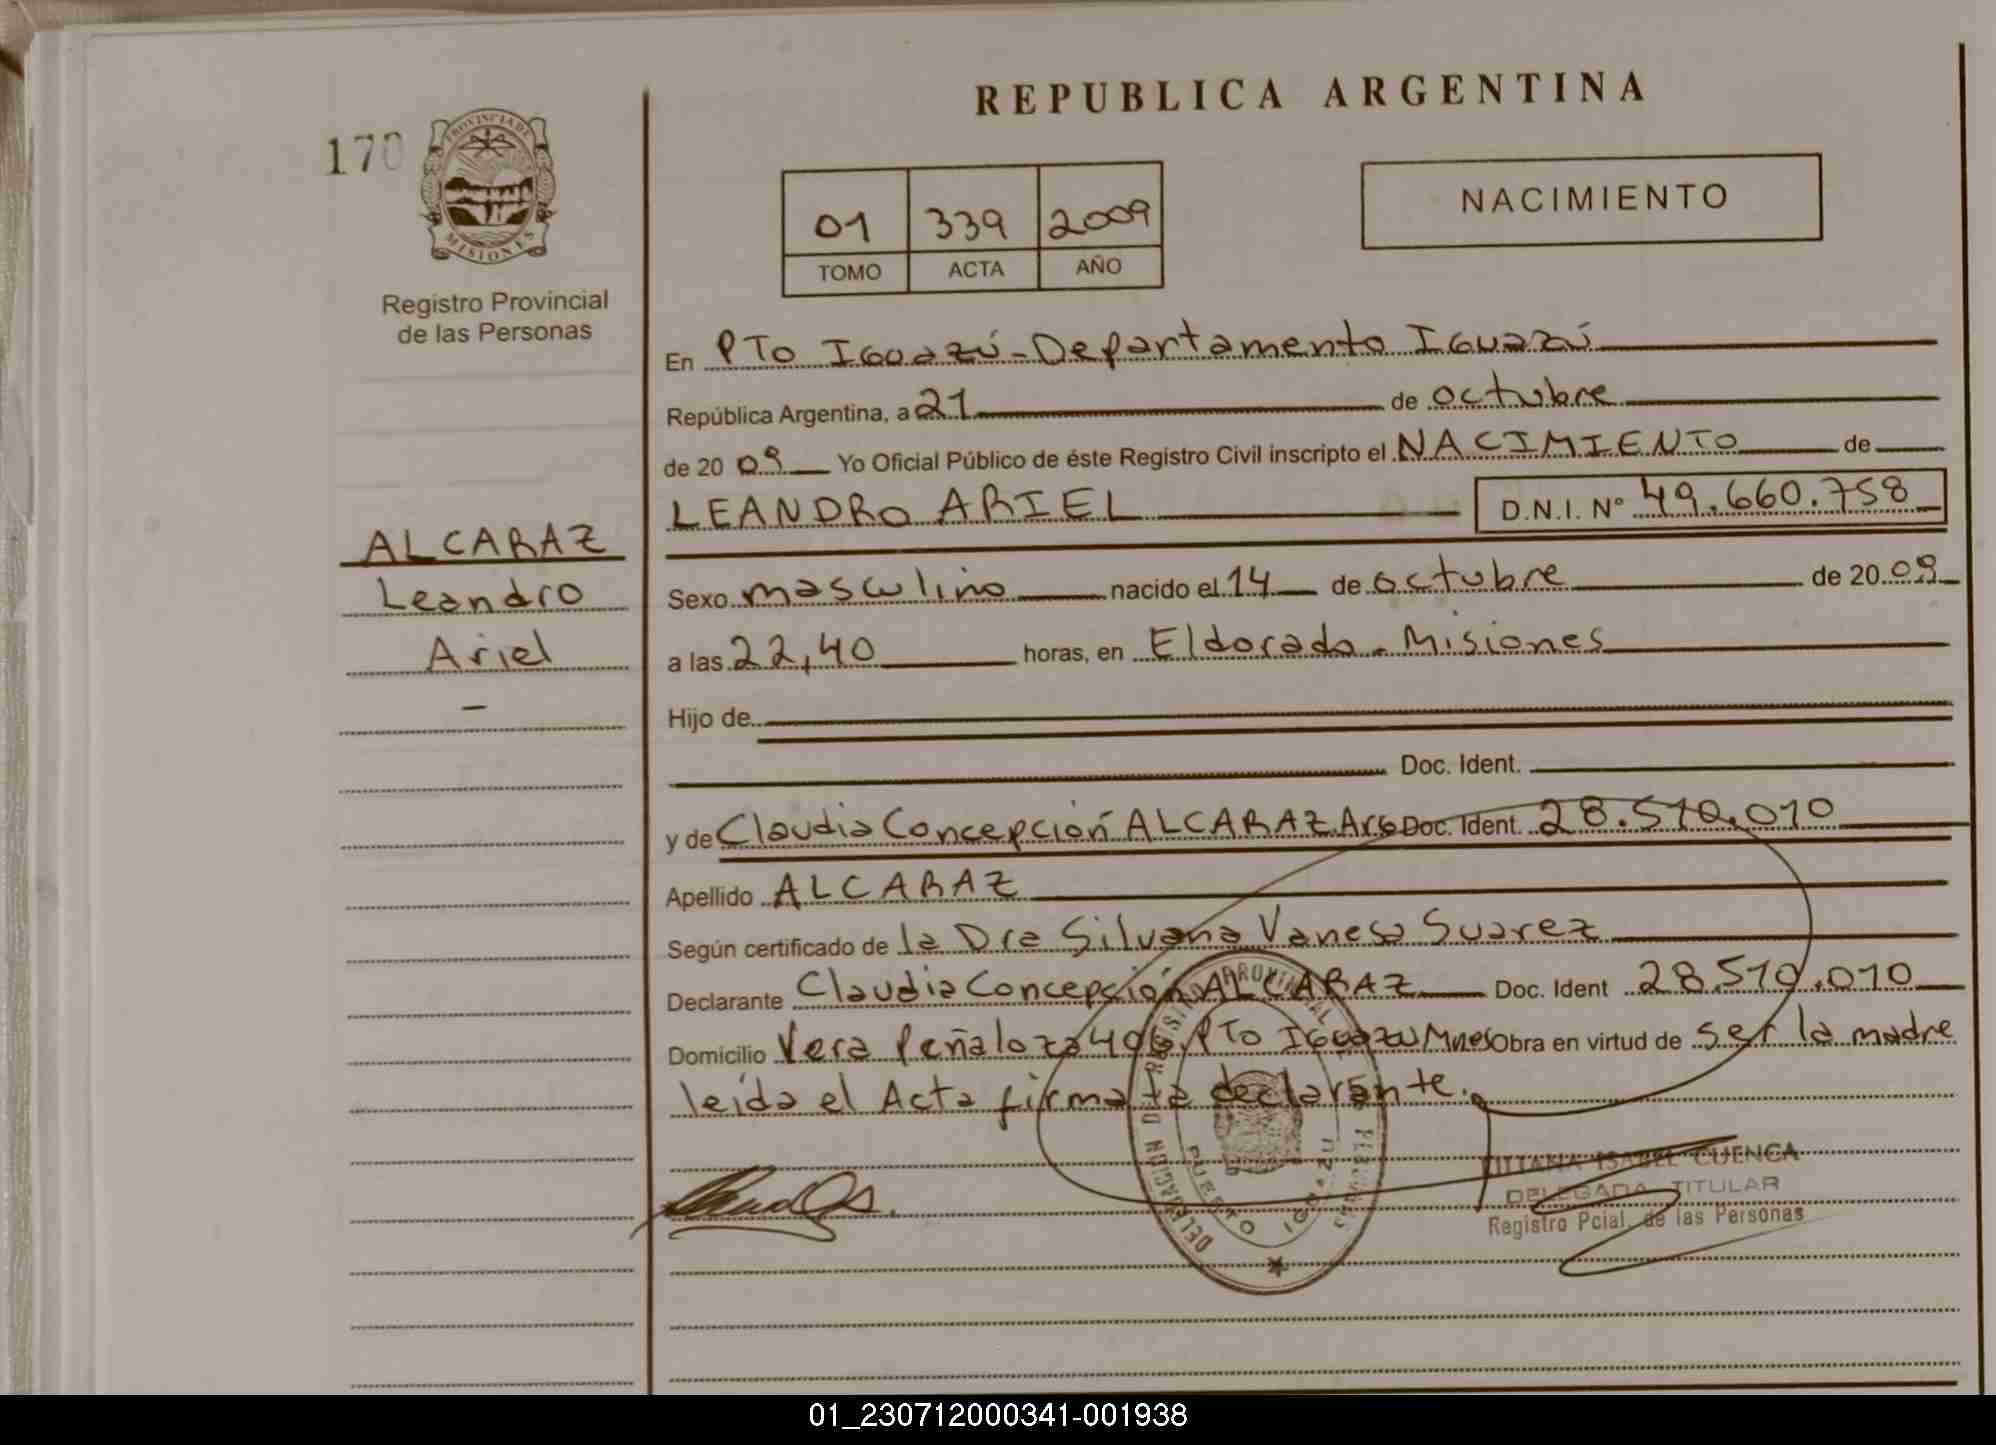 REPUBLICA ARGENTINA
170
PROVINCIA DE
MISIONES
Registro Provincial
de las Personas
01 339 2009
TOMO ACTA AÑO
NACIMIENTO
En PTo Iguazú - Departamento Iguazú
República Argentina, a 21 de octubre
de 20 09 Yo Oficial Público de éste Registro Civil inscripto el NACIMIENTO de
LEANDRO ARIEL D.N.I. Nº 49.660.758
ALCARAZ
Leandro
Ariel
-
Sexo masculino nacido el 14 de octubre de 20 09
a las 22,40 horas, en Eldorado - Misiones
Hijo de
Doc. Ident.
y de Claudia Concepción ALCARAZ Arg Doc. Ident. 28.510.010
Apellido ALCARAZ
Según certificado de la Dra Silvana Vanesa Suarez
Declarante Claudia Concepción ALCARAZ Doc. Ident 28.510.010
Domicilio Vera Peñaloza 406 PTo Iguazu Mnes Obra en virtud de ser la madre
leída el Acta firma la declarante.
DELEGACION DE REGISTRO PROVINCIAL PERSONAS
PUERTO IGUAZU
ISABEL CUENCA
DELEGADA TITULAR
Registro Pcial. de las Personas
01_230712000341-001938